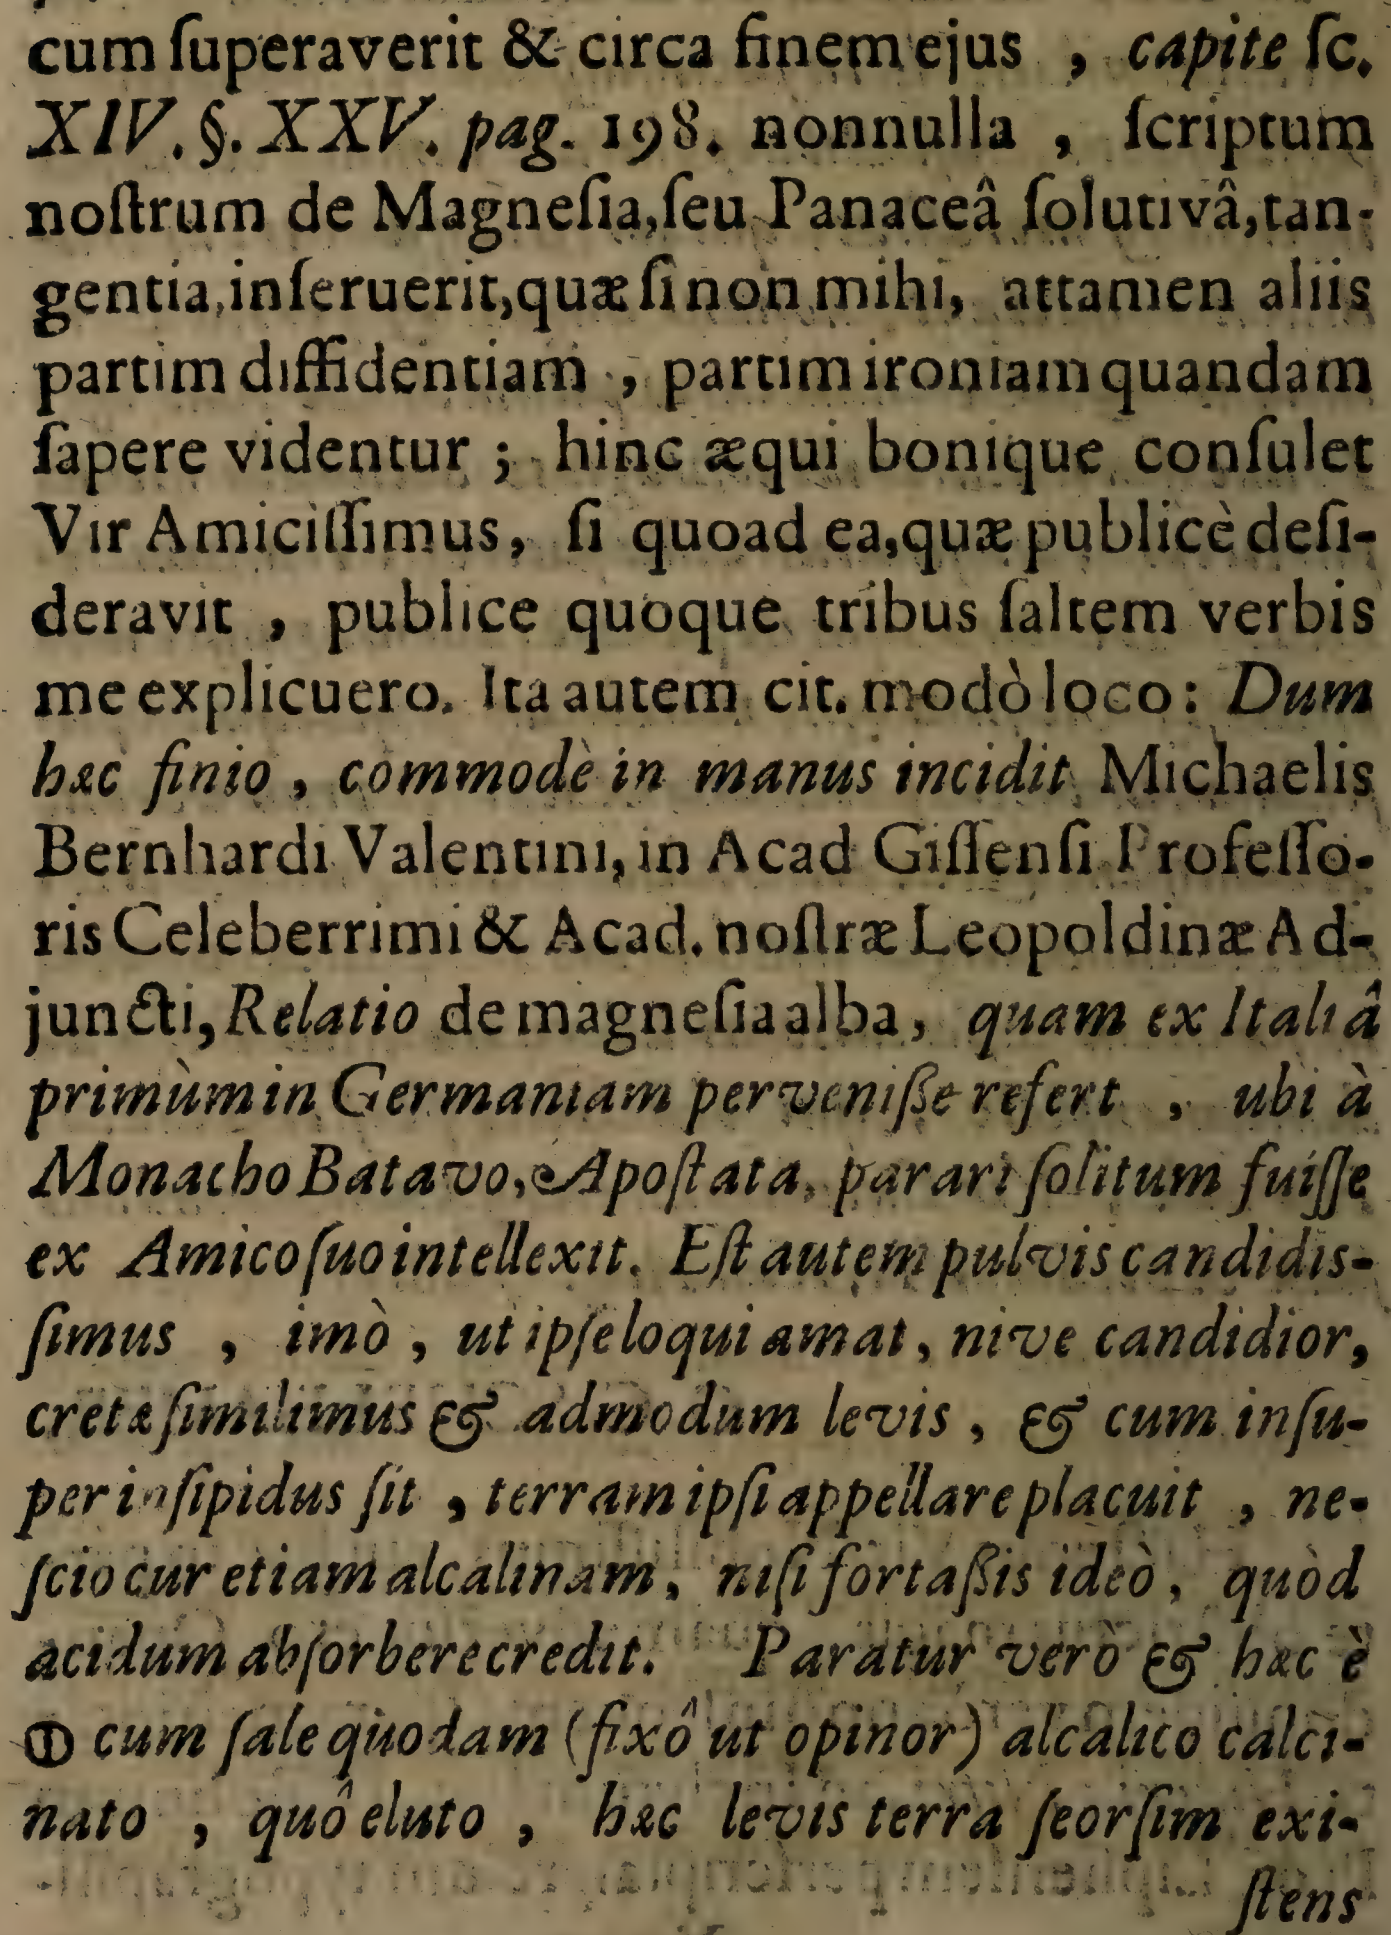 cum ſuperaverit & circa finem ejus , capite ſc.
XIV. §. XXV. pag. 198. nonnulla , ſcriptum
noſtrum de Magneſia, ſeu Panaceâ ſolutivâ, tan-
gentia, inſeruerit, quæ ſi non mihi, attamen aliis
partim diffidentiam , partim ironiam quandam
ſapere videntur ; hinc æqui bonique conſulet
Vir Amiciſſimus, ſi quoad ea, quæ publicè deſi-
deravit , publice quoque tribus ſaltem verbis
me explicuero. Ita autem cit. modò loco: Dum
hæc finio , commodè in manus incidit Michaelis
Bernhardi Valentini, in Acad Giſſenſi Profeſſo-
ris Celeberrimi & Acad. noſtræ Leopoldinæ Ad-
juncti, Relatio de magneſia alba , quam ex Italiâ
primùm in Germaniam perveniſſe refert , ubi à
Monacho Batavo, Apoſtata, parari ſolitum fuiſſe
ex Amico ſuo intellexit. Eſt autem pulvis candidis-
ſimus , imò , ut ipſe loqui amat, nive candidior,
cretæ ſimilimus & admodum levis , & cum inſu-
per inſipidus ſit , terram ipſi appellare placuit , ne-
ſcio cur etiam alcalinam, niſi fortaßis ideò, quòd
acidum abſorbere credit. Paratur verò & hæc è
🜕 cum ſale quodam (fixô ut opinor) alcalico calci-
nato , quô eluto , hæc levis terra ſeorſim exi-
ſtens